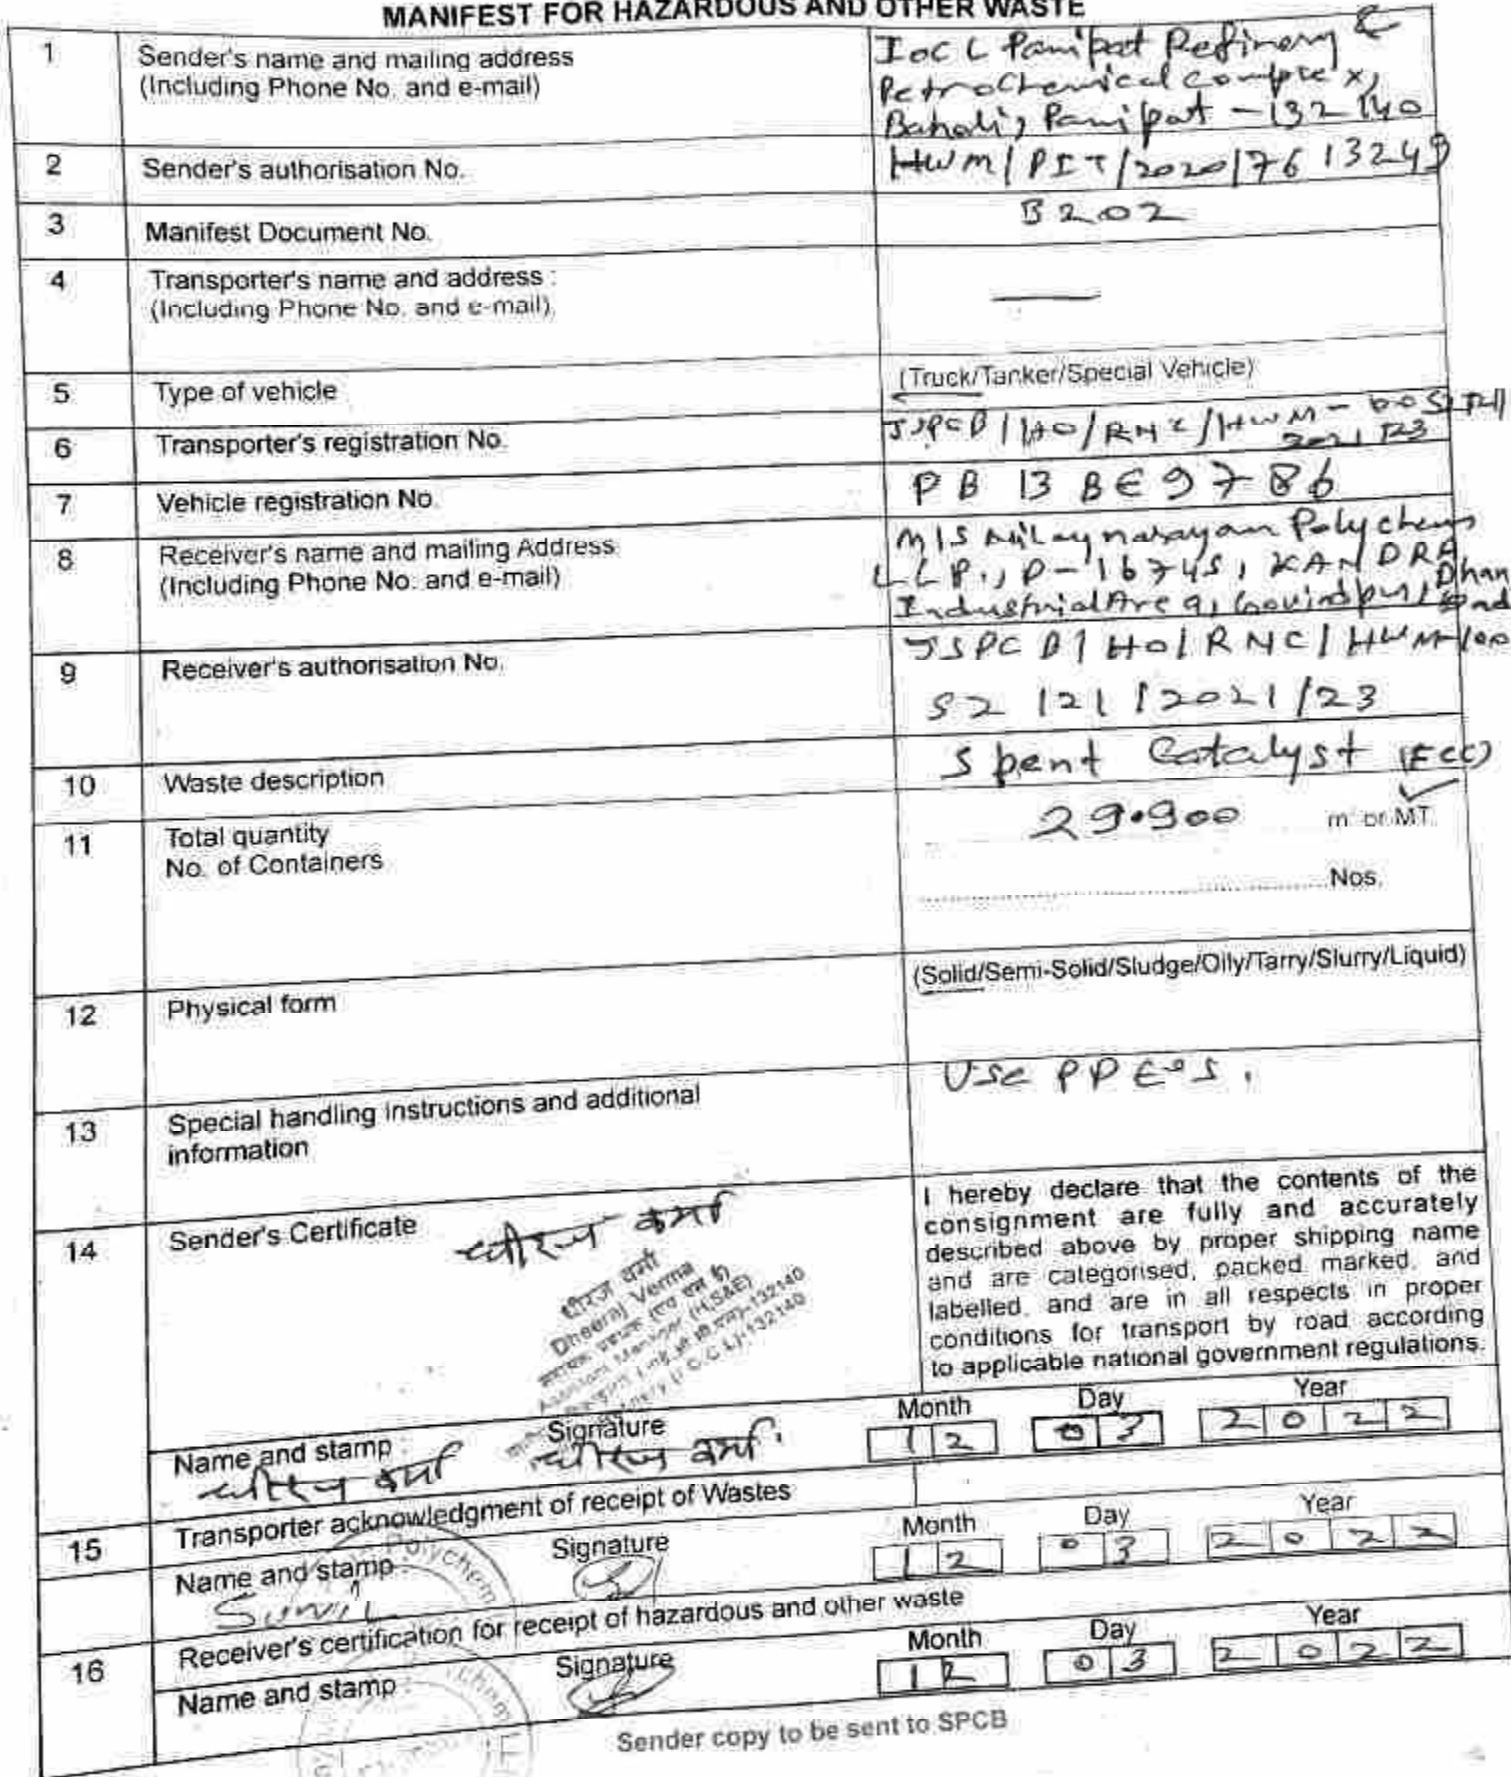 MANIFEST FOR HAZARDOUS AND OTHER WASTE
1 Sender's name and mailing address
(Including Phone No. and e-mail)
IOCL Panipat Refinery &
PetroChemical Complex,
Baholi, Panipat - 132140
2 Sender's authorisation No. HWM/PIT/2020/7613249
3 Manifest Document No. B202
4 Transporter's name and address :
(Including Phone No. and e-mail)
—
5 Type of vehicle (Truck/Tanker/Special Vehicle)
6 Transporter's registration No. JSPCB/HO/RNC/HWM-
2021/23
7 Vehicle registration No. PB 13 BE9786
8 Receiver's name and mailing Address
(Including Phone No. and e-mail)
M/S Nilaynarayan Polychems
LLP., KANDRA
Industrial Area, Govindpur, Dhan
bad
9 Receiver's authorisation No. JSPCB/HO/RNC/HWM-/00
52 121 /2021/23
10 Waste description Spent Catalyst (FCC)
11 Total quantity 29.900 m³ or MT.
No. of Containers Nos.
12 Physical form (Solid/Semi-Solid/Sludge/Oily/Tarry/Slurry/Liquid)
13 Special handling instructions and additional
information
Use PPE's.
14 Sender's Certificate धीरज वर्मा
धीरज वर्मा
Dheeraj Verma
Assistant Manager (H,S&E)
132140
(I.O.C.L)-132140
I hereby declare that the contents of the
consignment are fully and accurately
described above by proper shipping name
and are categorised, packed marked, and
labelled, and are in all respects in proper
conditions for transport by road according
to applicable national government regulations.
Name and stamp : Signature Month Day Year
धीरज वर्मा धीरज वर्मा 12 03 2022
15 Transporter acknowledgment of receipt of Wastes
Name and stamp : Signature Month Day Year
Sunil 12 03 2022
Polychem
16 Receiver's certification for receipt of hazardous and other waste
Name and stamp : Signature Month Day Year
12 03 2022
Sender copy to be sent to SPCB